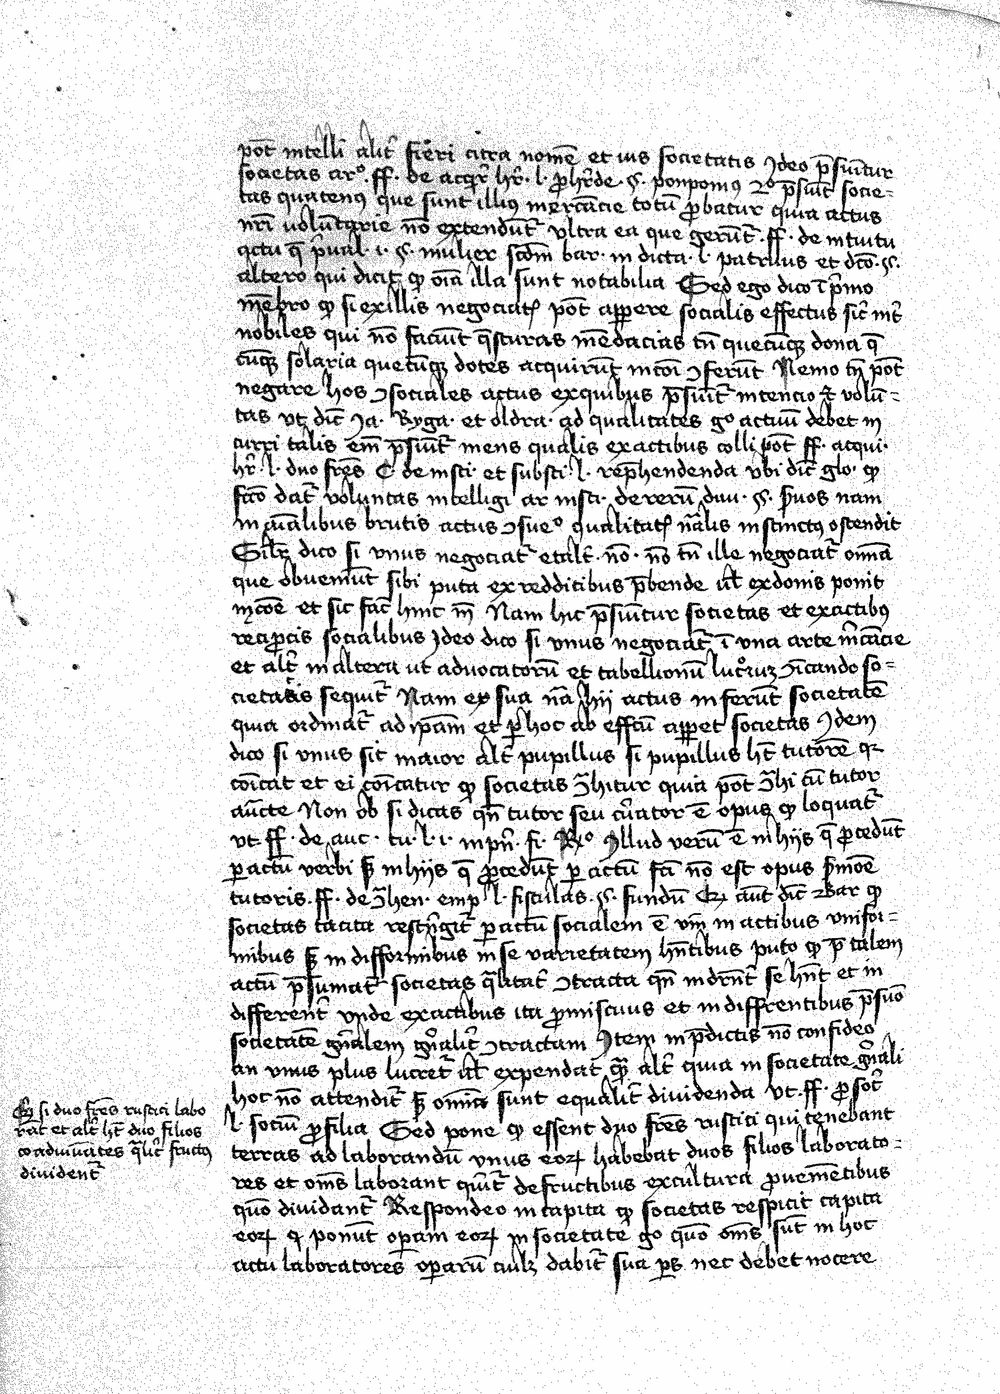 pot̄ intelli alit̄ fieri citra nomē et ius societatis Jdeo p̄sumitur
societas ar° .ff. de acqr̄ hr̄. l. ꝓhr̄de .§. ponponiꝰ 2° p̄sum̄t socie=
tas quatenꝰ que sunt illiꝰ mercācie totū ꝓbatur quia actus
nr̄i volūtarie nō extendūt᷑ vltra ea que gerūt᷑ .ff. de intuitu
.§. mulier scd̄m bar. in dicta .l. patruus et dc̄o .§.
altero qui dicit ꝙ oīa illa sunt notabilia Sed ego dico ī p̄mo
mēbro ꝙ si ex illis negociat̄ꝭ pōt apꝑere socialis effectus sic̄ int̄
nobiles qui nō faciūt mēdacias tn̄ quecūqꝫ dona q̄
cūqꝫ solaria quecūqꝫ dotes acquirūt incoī ꝯferūt Nemo tn̄ pōt
negare hos ꝯsociales actus ex quibus p̄sum̄t᷑ intencio et volū=
tas vt dic̄ Ja. Byga. et oldra. ad qualitates go actuū debet in
talis em̄ p̄sum̄t᷑ mens qualis ex actibus colli pōt ff. acqui.
hr̄. l. duo fr̄es C de insti. et substi. l. rep̄hendenda vbi dic̄ glo. ꝙ
fc̄o dat᷑ voluntas intelligi ar insti. de rerū diui. §. nam
in aīalibus brutis actus ꝯsue° qualitat̄ꝭ nālis instinctꝰ ostendit
Silr̄ dico si vnus negociat᷑ et alt̄. nō. nō tn̄ ille negociat᷑ omnia
que obueniūt sibi puta ex redditibus p̄bende ul̄ ex donis ponit
incoē et sic fac̄ hinc in̄ Nam hic p̄sumitur societas et ex actibꝰ
reciprocis socialibus Jdeo dico si vnus negociat᷑ ī vna arte m̄cācie
et alt̄ in altera ut aduocatorū et tabellionū ꝯīcando so=
cietatis sequit᷑ Nam ex sua nā hij actus inferūt societatē
quia ordinat᷑ ad ip̄am et ꝑ hoc ab effcū apꝑet societas Jdem
dico si vnus sit maior alt̄ pupillus si pupillus hȝ tutorē qꝛ
coīcat et ei coīcatur ꝙ societas ꝯ̄hitur quia pōt ꝯ̄hi cū tutor
auc̄te Non ob si dicas qn̄ tutor seu c̄ator ē opus ꝙ loquat᷑
vt .ff. de auc. tu. l. i. in pn̄. fi. R° Jllud verū ē in hijs q̄ ꝓcedūt
ꝑ actū verbi sꝫ in hijs q̄ ꝓcedūt ꝑ actū fc̄i nō est opus p̄mōe
tutoris .ff. de ꝯ̄hen. emp̄ l. fistulas .§. fundū Qꝫ aūt dic̄ Bar ꝙ
societas tacita rest̄ngit᷑ ꝑ actū socialem ē vm̄ in actibus vnifor=
mibus sꝫ in difformibus in se varietatem hn̄tibus puto ꝙ p̄ talem
actū p̄sumat᷑ societas q̄litat̄ ꝯtracta qn̄ indrn̄t se hn̄t et in
differen̄t vnde ex actibus ita ꝓmiscuus et in diffrentibus p̄suo
societatē gn̄alem gn̄alit̄ ꝯtractam Jtem in p̄dictis nō confideo
an vnus plus lucret᷑ ul̄ expendat qm̄ alt̄ quia in societate gn̄ali
hoc nō attendit᷑ sꝫ omnia sunt equalit̄ diuidenda vt .ff. ꝓ soc̄
l. sociū ꝓ filia Sed pone ꝙ essent duo fr̄es rustici qui tenebant
terras ad laborandū vnus eorꝝ habebat duos filios laborato=
res et om̄s laborant qrit᷑ de fructibus ex cultura ꝓuemētibus
quō diuidant᷑ Respondeo in capita ꝙ societas respicit capita
eorꝝ ꝙ ponūt oꝑam eorꝝ in societate go quō om̄s sūt in hoc
actu laboratores oꝑarū cuilꝫ dabit᷑ sua ꝑs nec debet nocere
Qꝫ si duo fr̄es rustici labo
rāt et alt̄ hȝ duo filios
coadiuuātes q̄lit̄ fructꝰ
diuident᷑